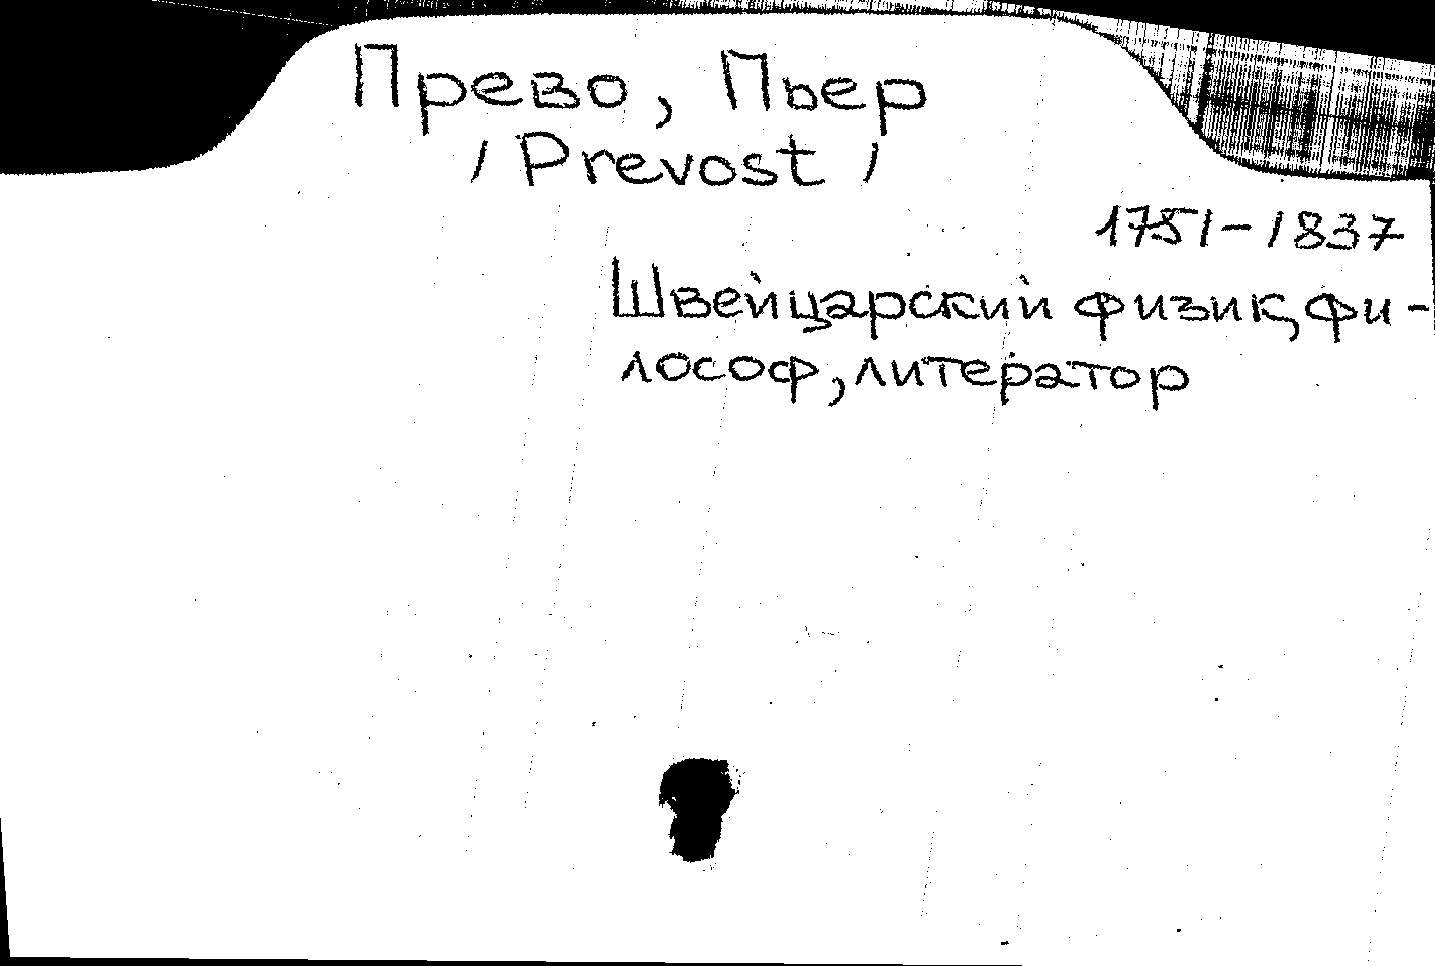 Прево, Пьер
/ Prevost /
1751-1837
Швейцарский физик, фи-
лософ, литератор